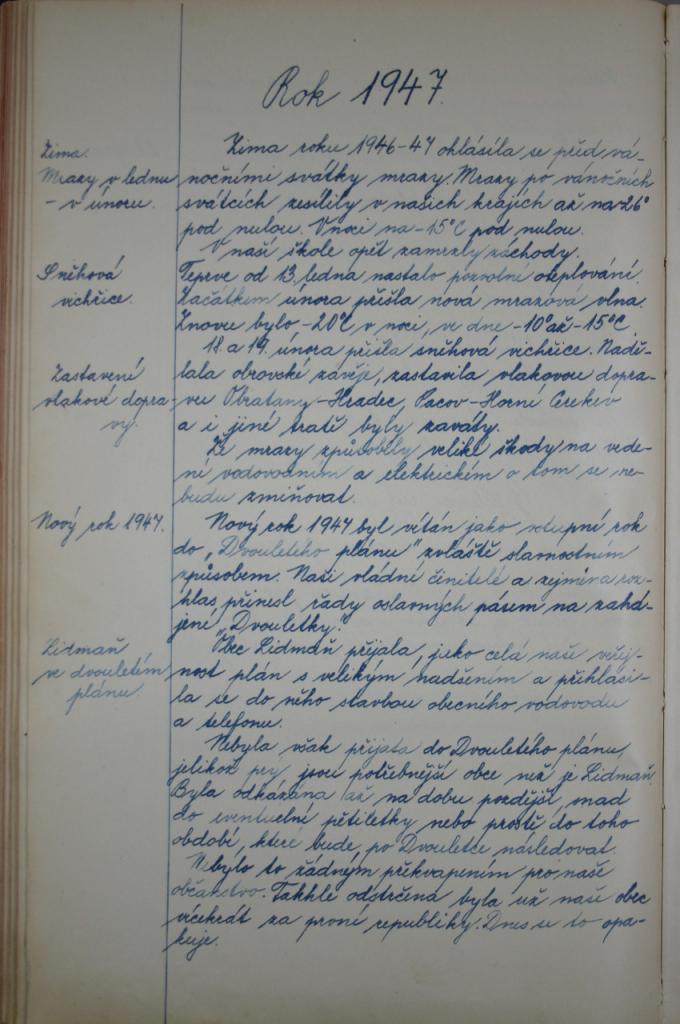 Rok 1947.
Zima.
Mrazy v lednu
- v únoru.
Zima roku 1946-47 ohlásila se před vá-
nočními svátky mrazy. Mrazy po vánočních
svátcích zesílily v našich krajích až na -26°
pod nulou. V noci na -15°C pod nulou.
V naší škole opět zamrzly záchody.
Sněhová
vichřice.
Teprve od 13. ledna nastalo pozvolné oteplování.
Začátkem února přišla nová mrazová vlna.
Znovu bylo -20°C v noci, ve dne -10° až -15°C.
18. a 19. února přišla sněhová vichřice. Nadě-
Zastavení
vlakové dopra-
vy.
lala obrovské závěje, zastavila vlakovou dopra-
vu Obratany-Hradec, Pacov-Horní Cerekev
a i jiné tratě byly zaváty.
Že mrazy způsobily veliké škody na vede-
ní vodovodním a elektrickém o tom se ne-
budu zmiňovat.
Nový rok 1947.
Nový rok 1947 byl vítán jako vstupní rok
do „Dvouletého plánu" zvláště slavnostním
způsobem. Naši vládní činitelé a zejména roz-
hlas přinesl řady oslavných pásem na zahá-
jení „Dvouletky."
Lidmaň
ve dvouletém
plánu.
Obec Lidmaň přijala, jako celá naše veřej-
nost plán s velikým nadšením a přihlási-
la se do něho stavbou obecního vodovodu
a telefonu.
Nebyla však přijata do Dvouletého plánu,
jelikož prý jsou potřebnější obce než je Lidmaň.
Byla odkázána až na dobu pozdější, snad
do eventuelní pětiletky nebo prostě do toho
období, které bude po Dvouletce následovat.
Nebylo to žádným překvapením pro naše
občanstvo. Takhle odstrčena byla už naše obec
vícekrát za první republiky. Dnes se to opa-
kuje.